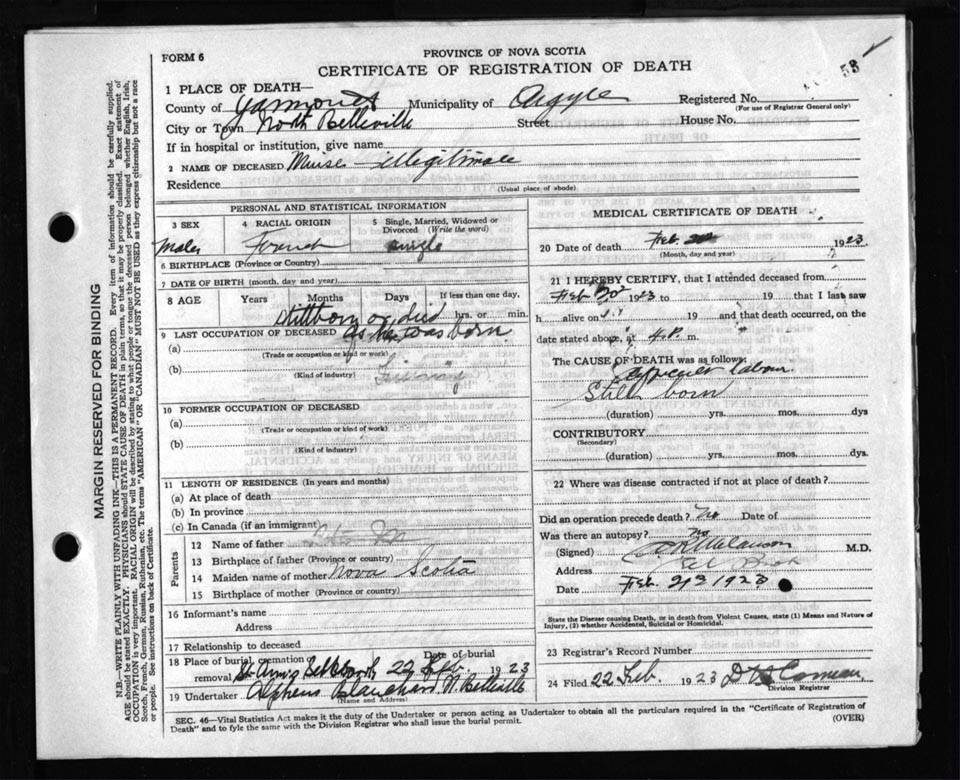 58
PROVINCE OF NOVA SCOTIA
FORM 6
CERTIFICATE OF REGISTRATION OF DEATH
1 PLACE OF DEATH—
County of Yarmouth Municipality of Argyle Registered No.
(For use of Registrar General only)
City or Town North Belleville Street House No.
If in hospital or institution, give name
2 NAME OF DECEASED Muise - illegitimate
Residence
(Usual place of abode)
PERSONAL AND STATISTICAL INFORMATION
3 SEX 4 RACIAL ORIGIN 5 Single, Married, Widowed or Divorced (Write the word)
Male French single
6 BIRTHPLACE (Province or Country)
7 DATE OF BIRTH (month, day and year)
8 AGE Years Months Days If less than one day,
hrs. or min.
Stillborn or died
9 LAST OCCUPATION OF DECEASED as was born
(a)
(Trade or occupation or kind of work)
(b)
(Kind of industry)
10 FORMER OCCUPATION OF DECEASED
(a)
(Trade or occupation or kind of work)
(b)
(Kind of industry)
11 LENGTH OF RESIDENCE (In years and months)
(a) At place of death
(b) In province
(c) In Canada (if an immigrant)
Parents
12 Name of father
13 Birthplace of father (Province or country)
14 Maiden name of mother Nova Scotia
15 Birthplace of mother (Province or country)
16 Informant's name
Address
17 Relationship to deceased
18 Place of burial, cremation Date of burial
removal 22 Feb. 1923
19 Undertaker Alpheus Blanchard N. Belleville
(Name and Address)
MEDICAL CERTIFICATE OF DEATH
20 Date of death Feb. 1923
(Month, day and year)
21 I HEREBY CERTIFY, that I attended deceased from
Feb 20 1923 to 19 that I last saw
h alive on 19 and that death occurred, on
date stated above, at 4 P. m.
The CAUSE OF DEATH was as follows:
labour
Still born
(duration) yrs. mos. dys
CONTRIBUTORY
(Secondary)
(duration) yrs. mos. dys.
22 Where was disease contracted if not at place of death?
Did an operation precede death? No Date of
Was there an autopsy? No
(Signed) M.D.
Address
Date Feb. 21st 1923
State the Disease causing Death, or in death from Violent Causes, state (1) Means and Nature of Injury, (2) whether Accidental, Suicidal or Homicidal.
23 Registrar's Record Number
24 Filed 22 Feb. 1923
Division Registrar
SEC. 46—Vital Statistics Act makes it the duty of the Undertaker or person acting as Undertaker to obtain all the particulars required in the "Certificate of Registration of
Death" and to fyle the same with the Division Registrar who shall issue the burial permit. (OVER)
MARGIN RESERVED FOR BINDING
N.B.—WRITE PLAINLY WITH UNFADING INK—THIS IS A PERMANENT RECORD. Every item of information should be carefully supplied.
AGE should be stated EXACTLY. PHYSICIANS should STATE CAUSE OF DEATH in plain terms, so that it may be properly classified. Exact statement of
OCCUPATION is very important. RACIAL ORIGIN will be described by stating to what people or tongue the deceased person belonged whether English, Irish,
Scotch, French, German, Russian, Ruthenian, etc. The terms "AMERICAN" OR "CANADIAN" MUST NOT BE USED as they express citizenship but not a race
or people. See instructions on back of Certificate.